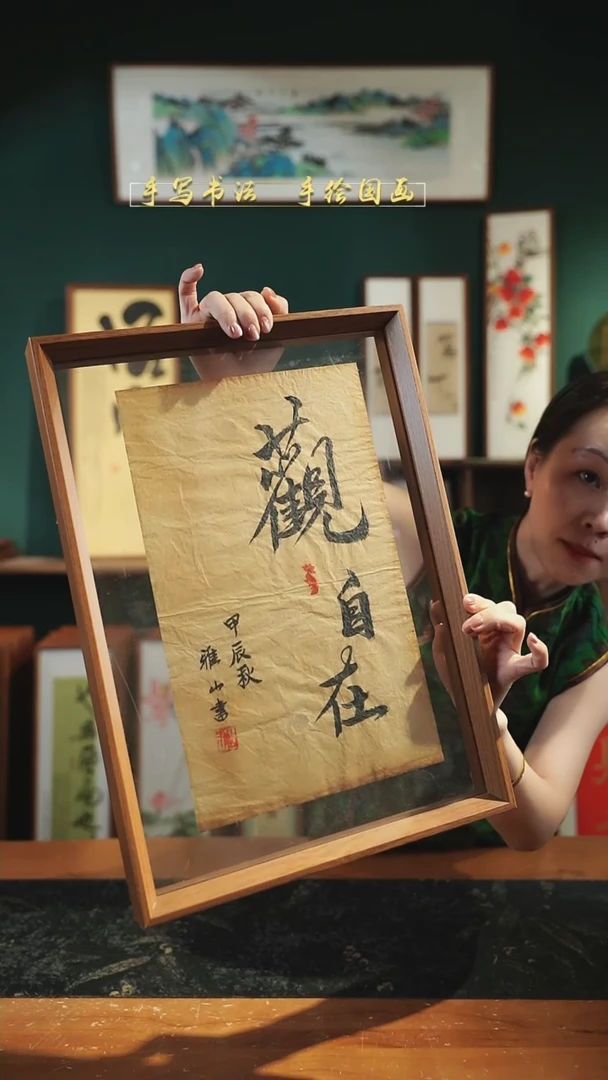 手写书法 手绘国画
觀自在
甲辰秋
雅山書